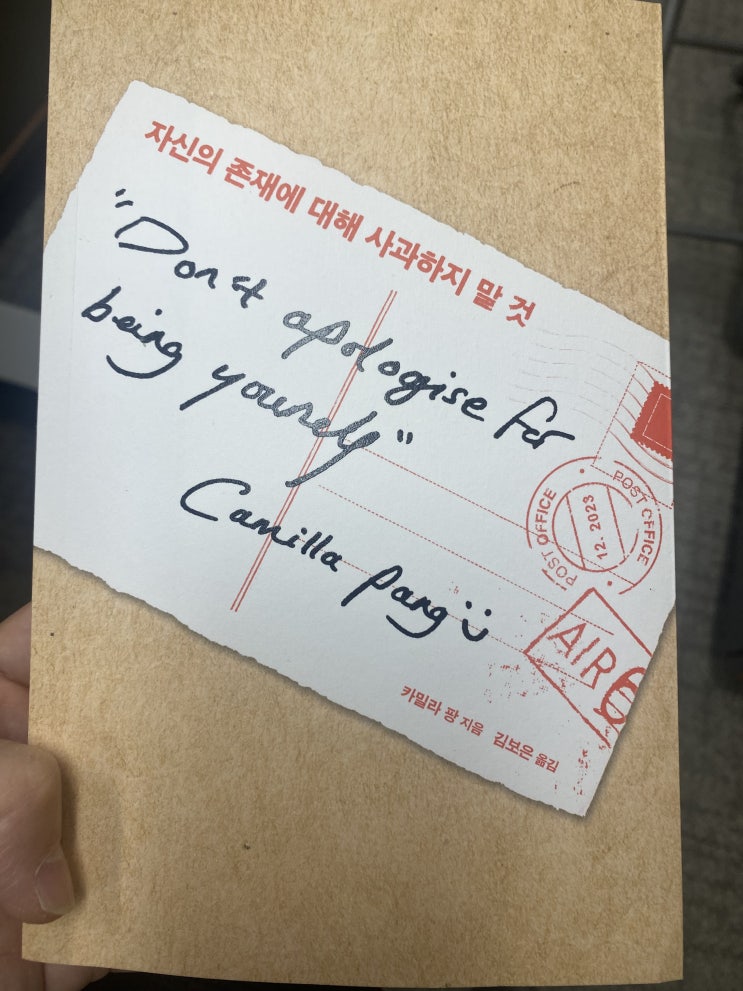 자신의 존재에 대해 사과하지 말 것
"Don't apologise for
being yourself"
Camilla Pang
POST OFFICE
12. 2023
POST OFFICE
AIR
카밀라 팡 지음 김보은 옮김